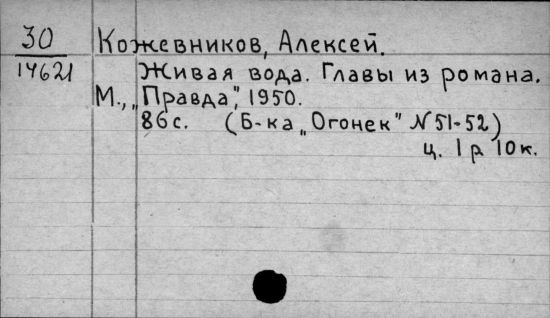 30 Кожевников, Алексей.
14621 Живая вода. Главы из романа.
М., „Правда", 1950.
86 с. (Б-ка „Огонек" N 51-52)
ц. 1 р 10 к.